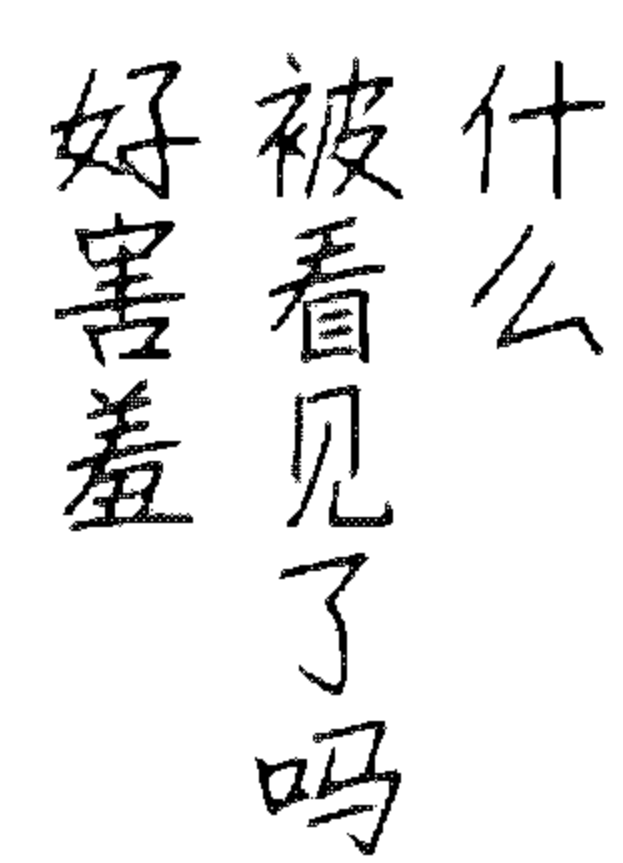 什么
被看见了吗
好害羞